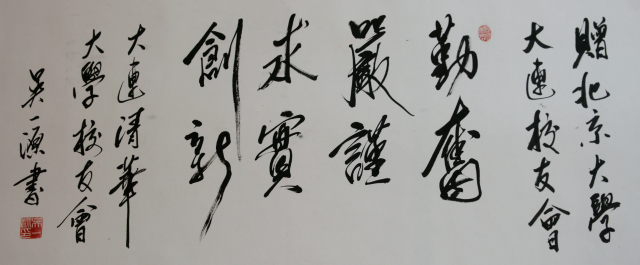 贈北京大學
大連校友會
勤奮
嚴謹
求實
創新
大連清華
大學校友會
吳一源書